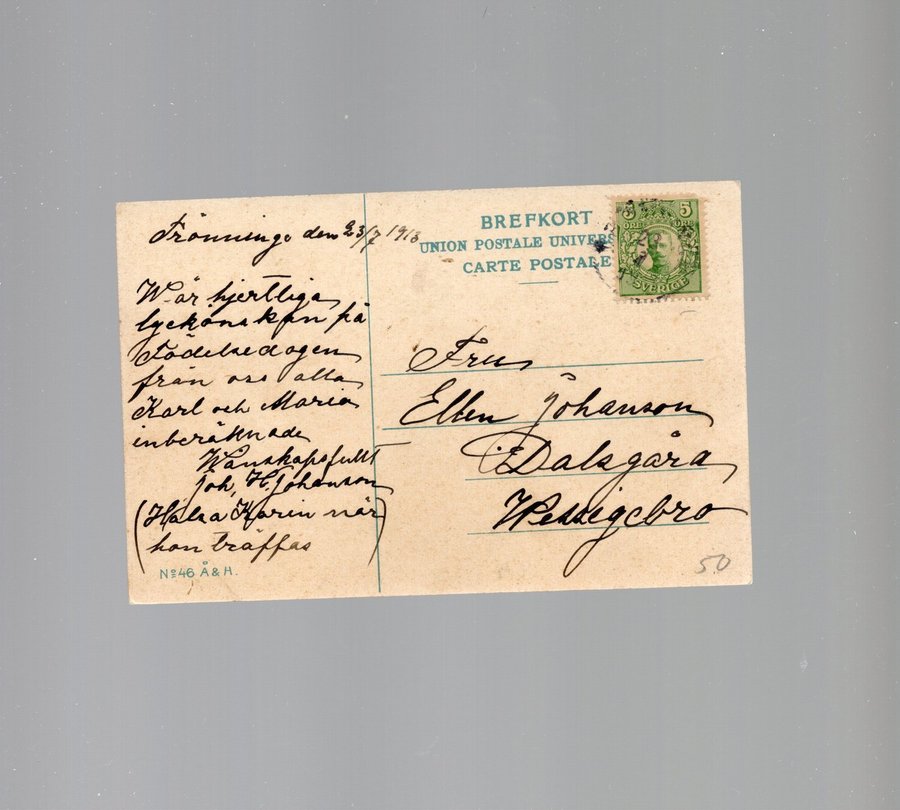 Frönninge den 23/7 1913
Wår hjertliga
lyckönskan på
Födelsedagen
från oss alla
Karl och Maria
inberäknade
Wänskapsfullt
Joh, H Johanson
(Hälsa Karin när
hon träffas)
No 46 Å & H.
BREFKORT
UNION POSTALE UNIVERS
CARTE POSTALE
5 5
ÖRE
SVERIGE
Fru
Ellen Johanson
Dalsgåra
Wessigebro
50